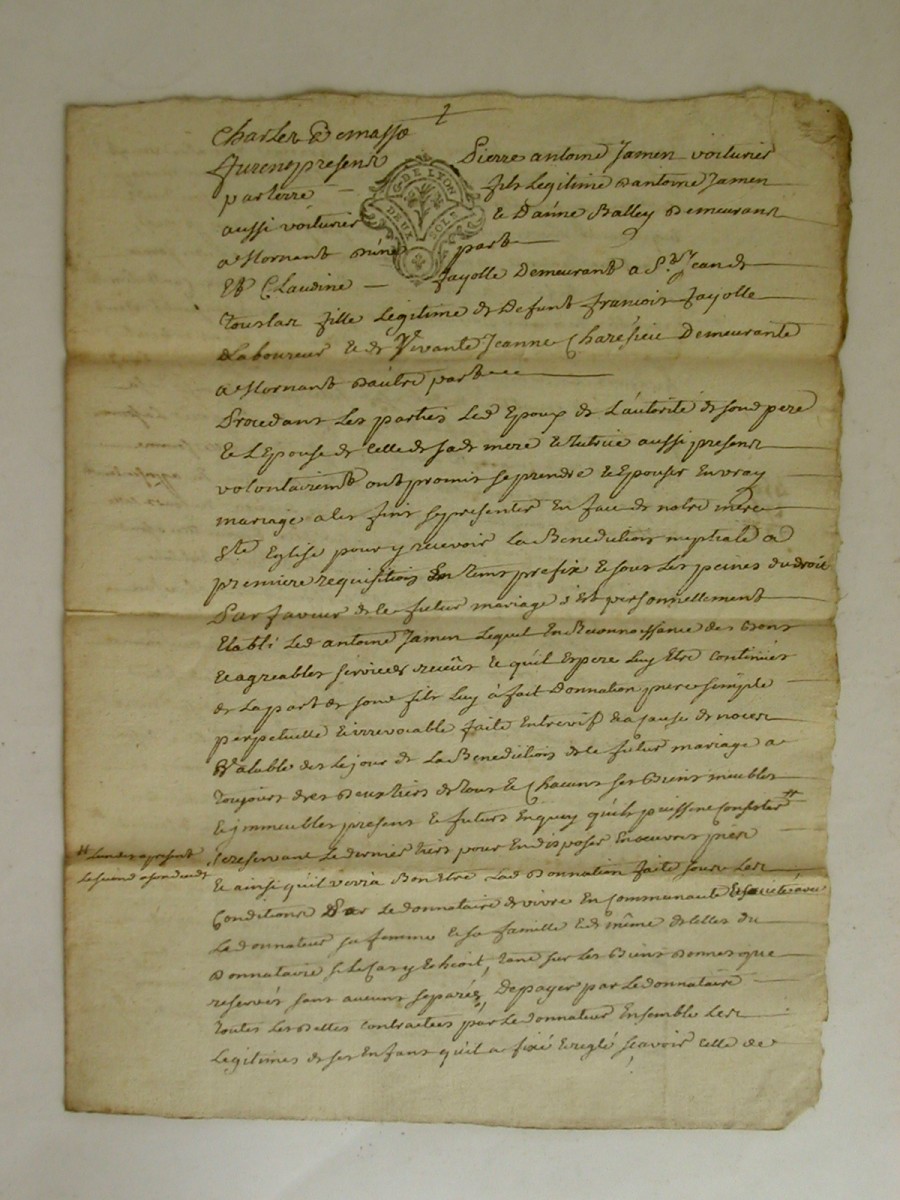 2
Charles Demasso
furent present Pierre antoine Jamen voiturier
par terre fils Legitime d'antoine Jamen
G. DE LYON
DEUX SOLS
aussi voiturier et D'anne Balley Demeurant
a Mornant d'une part
Et Claudine fayolle Demeurant a St Jean de
Touslas fille Legitime de Defunt francois fayolle
Laboureur et de Vivante Jeanne Demeurante
a Mornant d'autre part
Procedant Les parties Led Epoux de L'autorité de sond pere
et L'Epouse de celle de sad mere et tutrice aussi present
volontairemt ont promis se prendre et Epouser En vray
mariage a les fins se presenter En face de notre mere
Ste Eglise pour y recevoir La Benediction nuptiale a
premiere requisition En tems prefix et sous Les peines du droit
En faveur de ce futur mariage s'est personnellement
Etabli Led antoine Jamen Lequel En Reconnoissance des Bons
et agreables services reçeus et qu'il Espere Luy Etre continués
de La part de sond fils Luy a fait Donnation pure simple
perpetuelle et irrevocable faite Entrevif et a cause de noces
Valable des Le jour de La Benediction de ce futur mariage a
toujours des Deux tiers de tous et Chacuns ses Biens meubles
et immeubles present et futurs En quoy qu'ils puissent Consister #
# Lun des a present
Le second a son deces
se reservant Le dernier tiers pour En disposer En oeuvres pies
et ainsi qu'il verra Bon Etre Lad Donnation faite sous Les
Conditions Par Le donnataire de vivre En communauté Et société avec
Le donnateur sa femme et sa famille et de même de celles du
Donnataire si Le Cas y Echeoit, tant sur Les Biens Donnes que
reservés sans aucuns separés, de payer par Le donnataire
toutes Les dettes contractées par Le donnateur Ensemble Les
Legitimes de ses Enfans qu'il a fixé et reglé sçavoir celle de